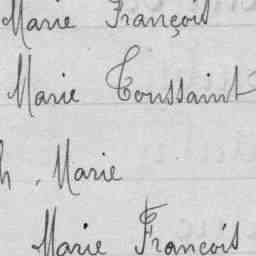 Marie François
Marie Toussaint
h, Marie
Marie François